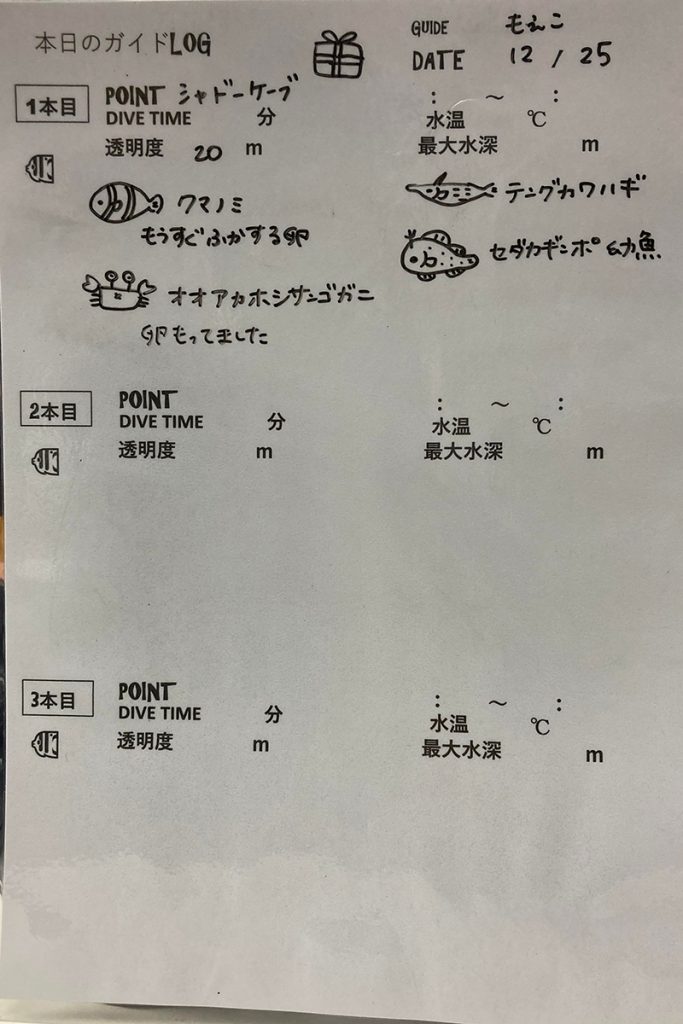 本日のガイドLOG
GUIDE もえこ
DATE 12 / 25
1本目 POINT シャドーケーブ : ～ :
DIVE TIME 分 水温 ℃
透明度 20 m 最大水深 m
クマノミ テングカワハギ
もうすぐふかする卵 セダカギンポ 幼魚
オオアカホシサンゴガニ
卵もってました
2本目 POINT : ～ :
DIVE TIME 分 水温 ℃
透明度 m 最大水深 m
3本目 POINT : ～ :
DIVE TIME 分 水温 ℃
透明度 m 最大水深 m